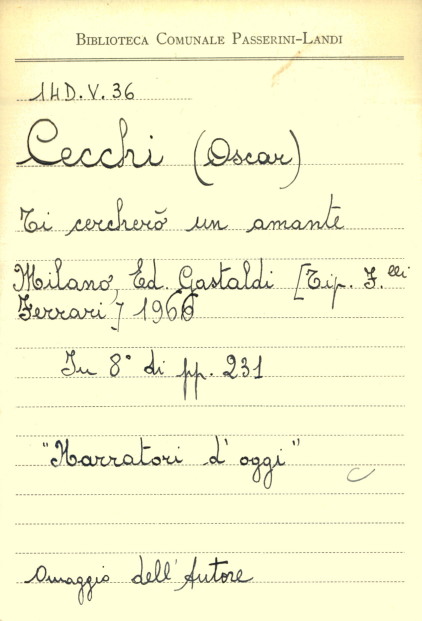 BIBLIOTECA COMUNALE PASSERINI-LANDI
14D.V.36
Cecchi (Oscar)
Ti cercherò un amante
Milano, Ed. Gastaldi [Tip. F.lli
Ferrari] 1966
In 8° di pp. 231
"Narratori d'oggi"
Omaggio dell'Autore